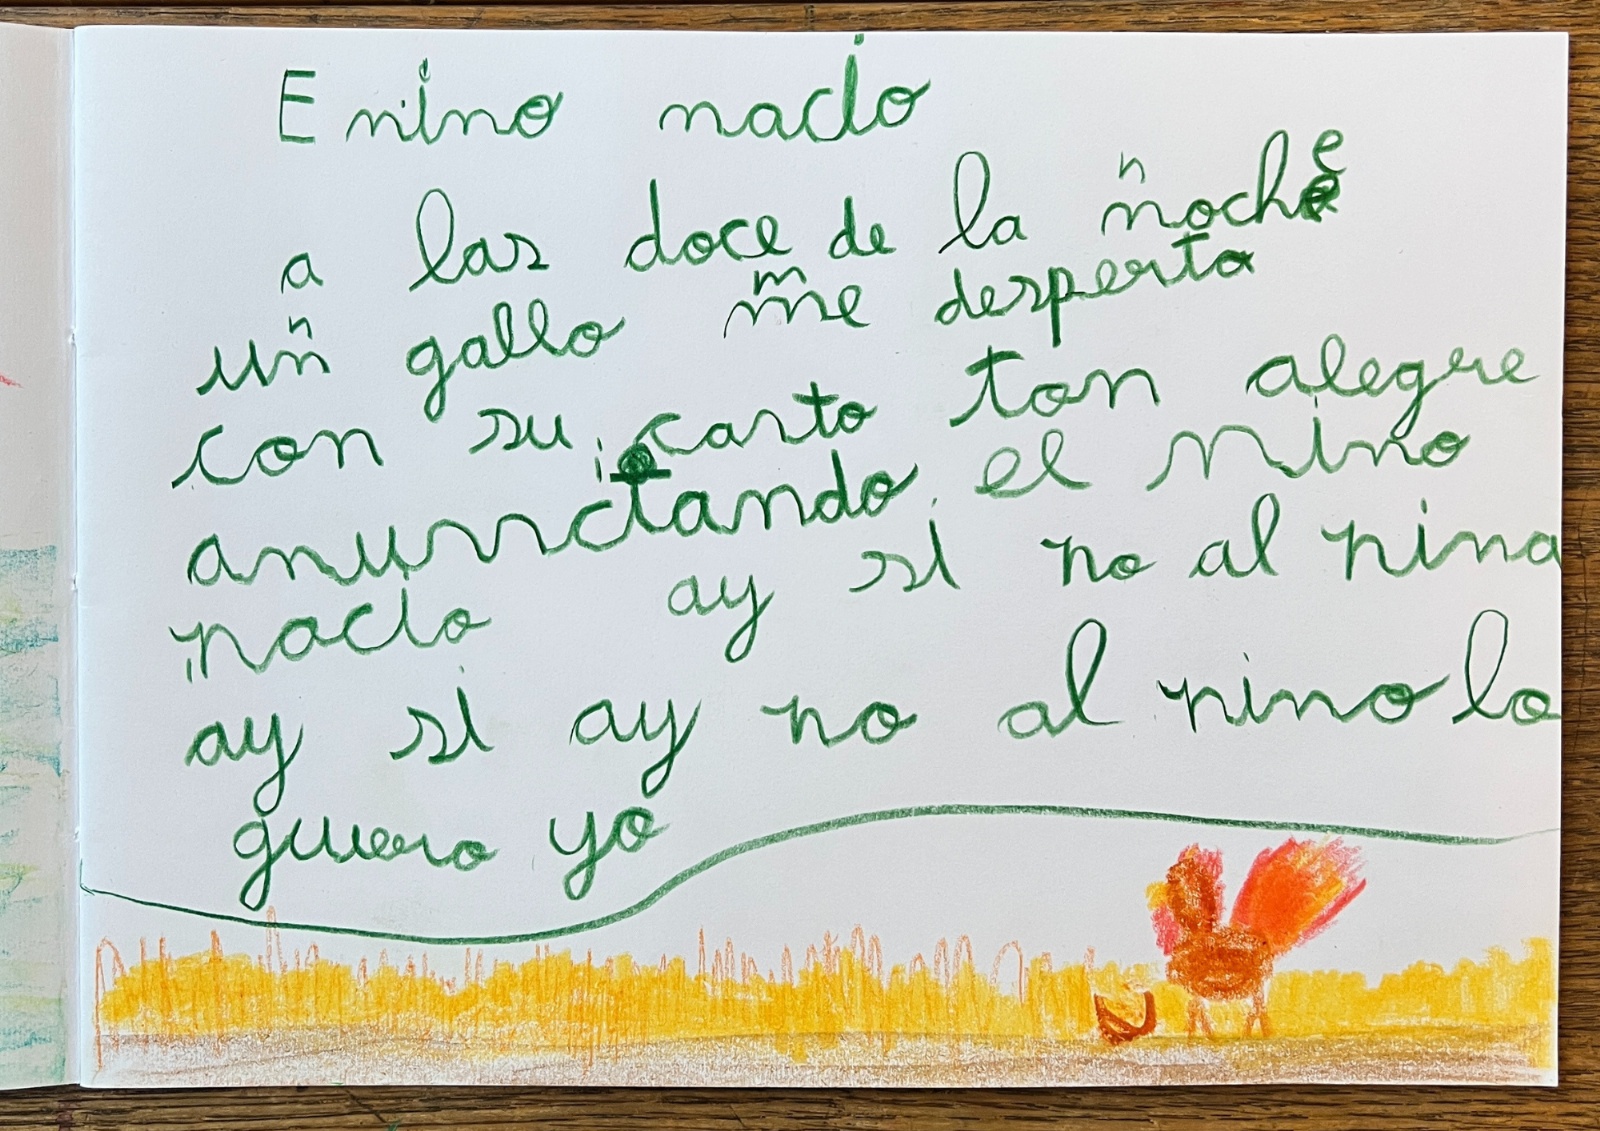 E nino nacio
a las doce de la noche
un gallo me desperta
con su canto tan alegre
anunciando el nino
nacio ay si no al nina
ay si ay no al nino lo
quiero yo